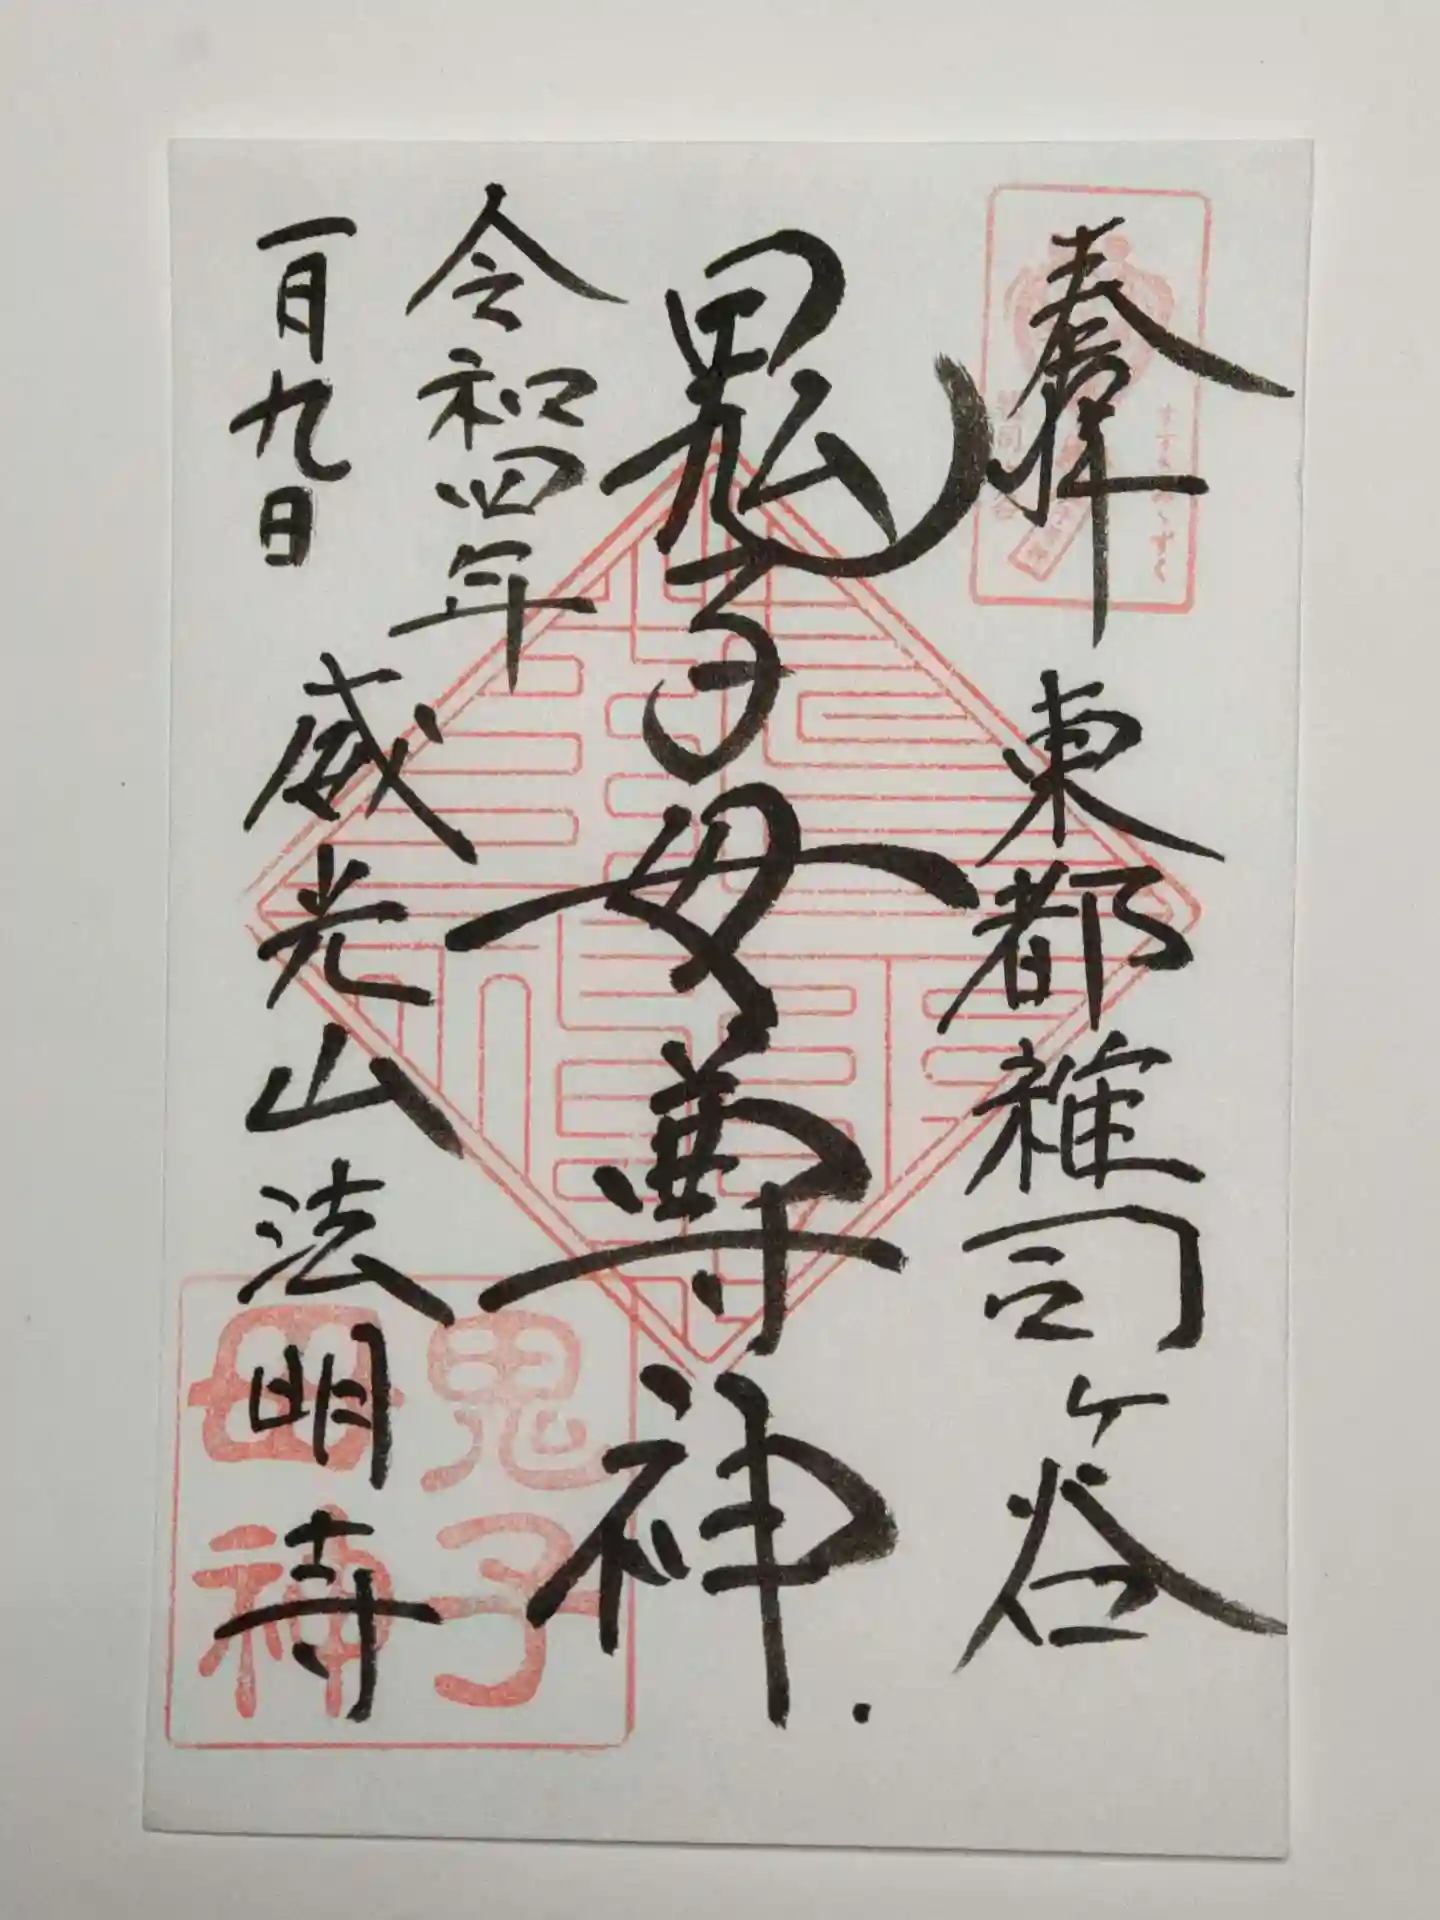 奉拝
東都雑司ヶ谷
鬼子母尊神
令和四年
一月九日
威光山法明寺
すすきみゝずく
鬼子
母神